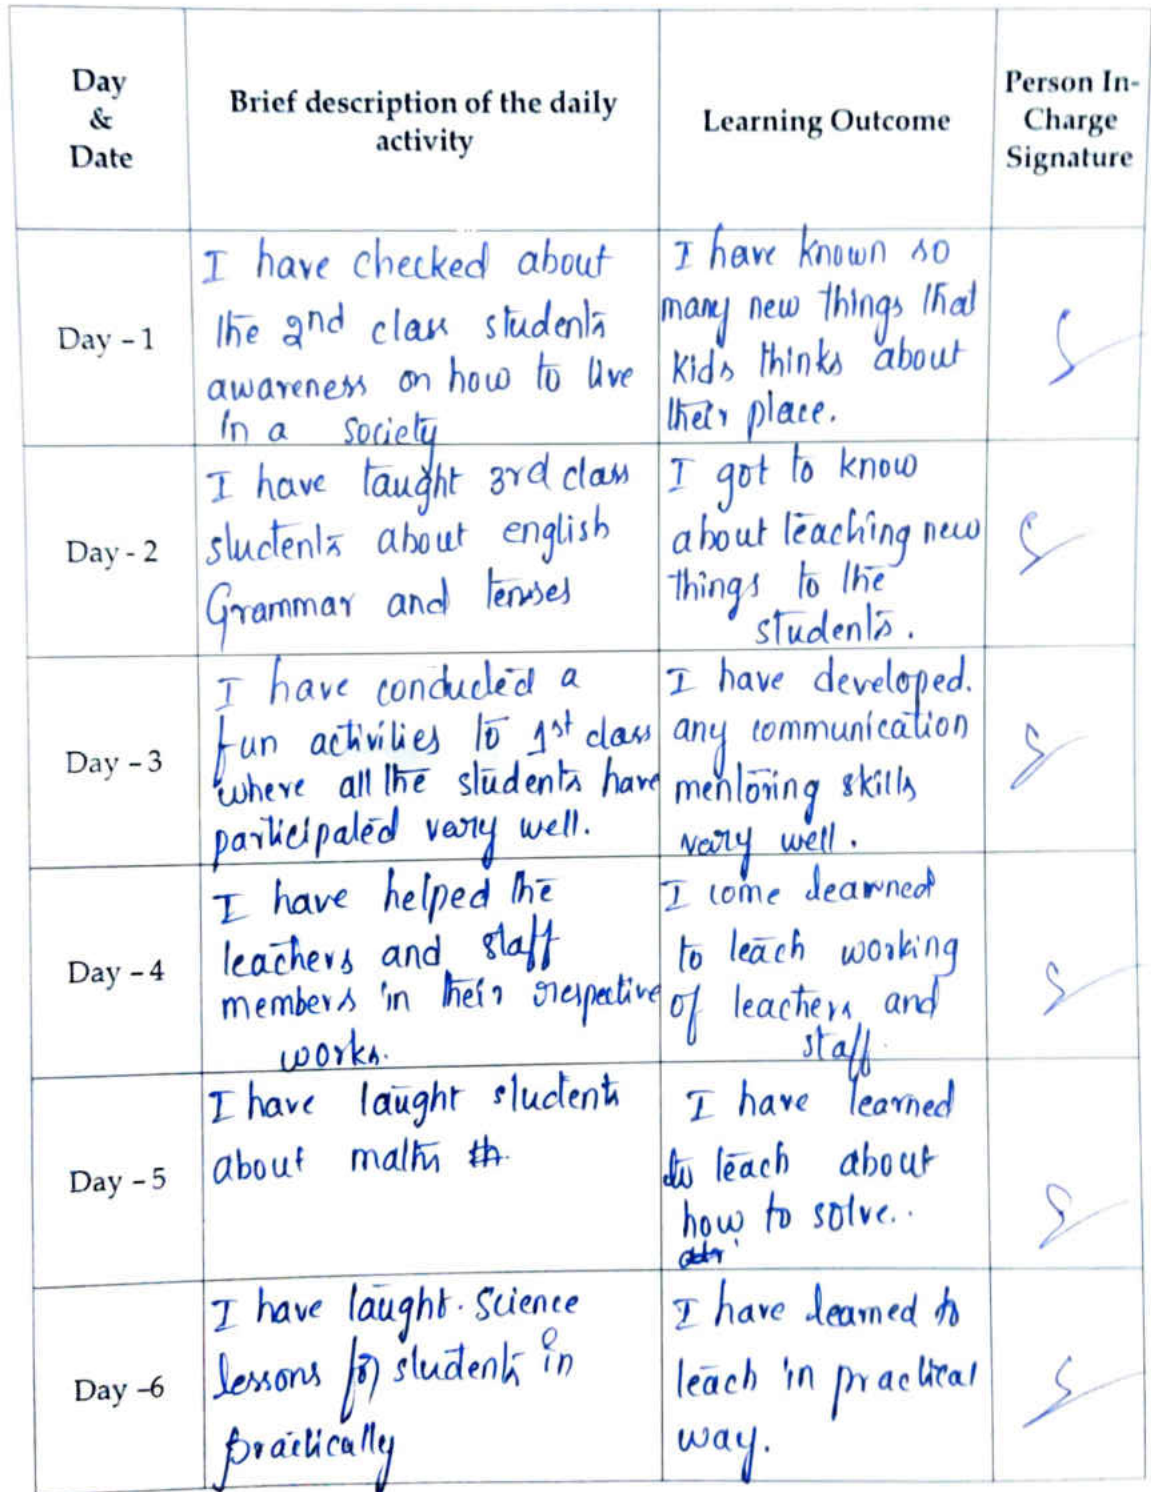 Day
&
Date
Brief description of the daily
activity
Learning Outcome
Person In-
Charge
Signature
Day - 1
I have checked about
the 2nd class students
awareness on how to live
in a society
I have known so
many new things that
kids thinks about
their place.
Day - 2
I have taught 3rd class
students about english
Grammar and tenses
I got to know
about teaching new
things to the
students.
Day - 3
I have conducted a
fun activities to 1st class
where all the students have
participated very well.
I have developed.
any communication
mentoring skills
very well.
Day - 4
I have helped the
teachers and staff
members in their respective
works.
I come learned
to teach working
of teachers and
staff.
Day - 5
I have taught students
about maths
I have learned
to teach about
how to solve..
Day -6
I have taught. Science
lessons for students in
practically
I have learned to
teach in practical
way.